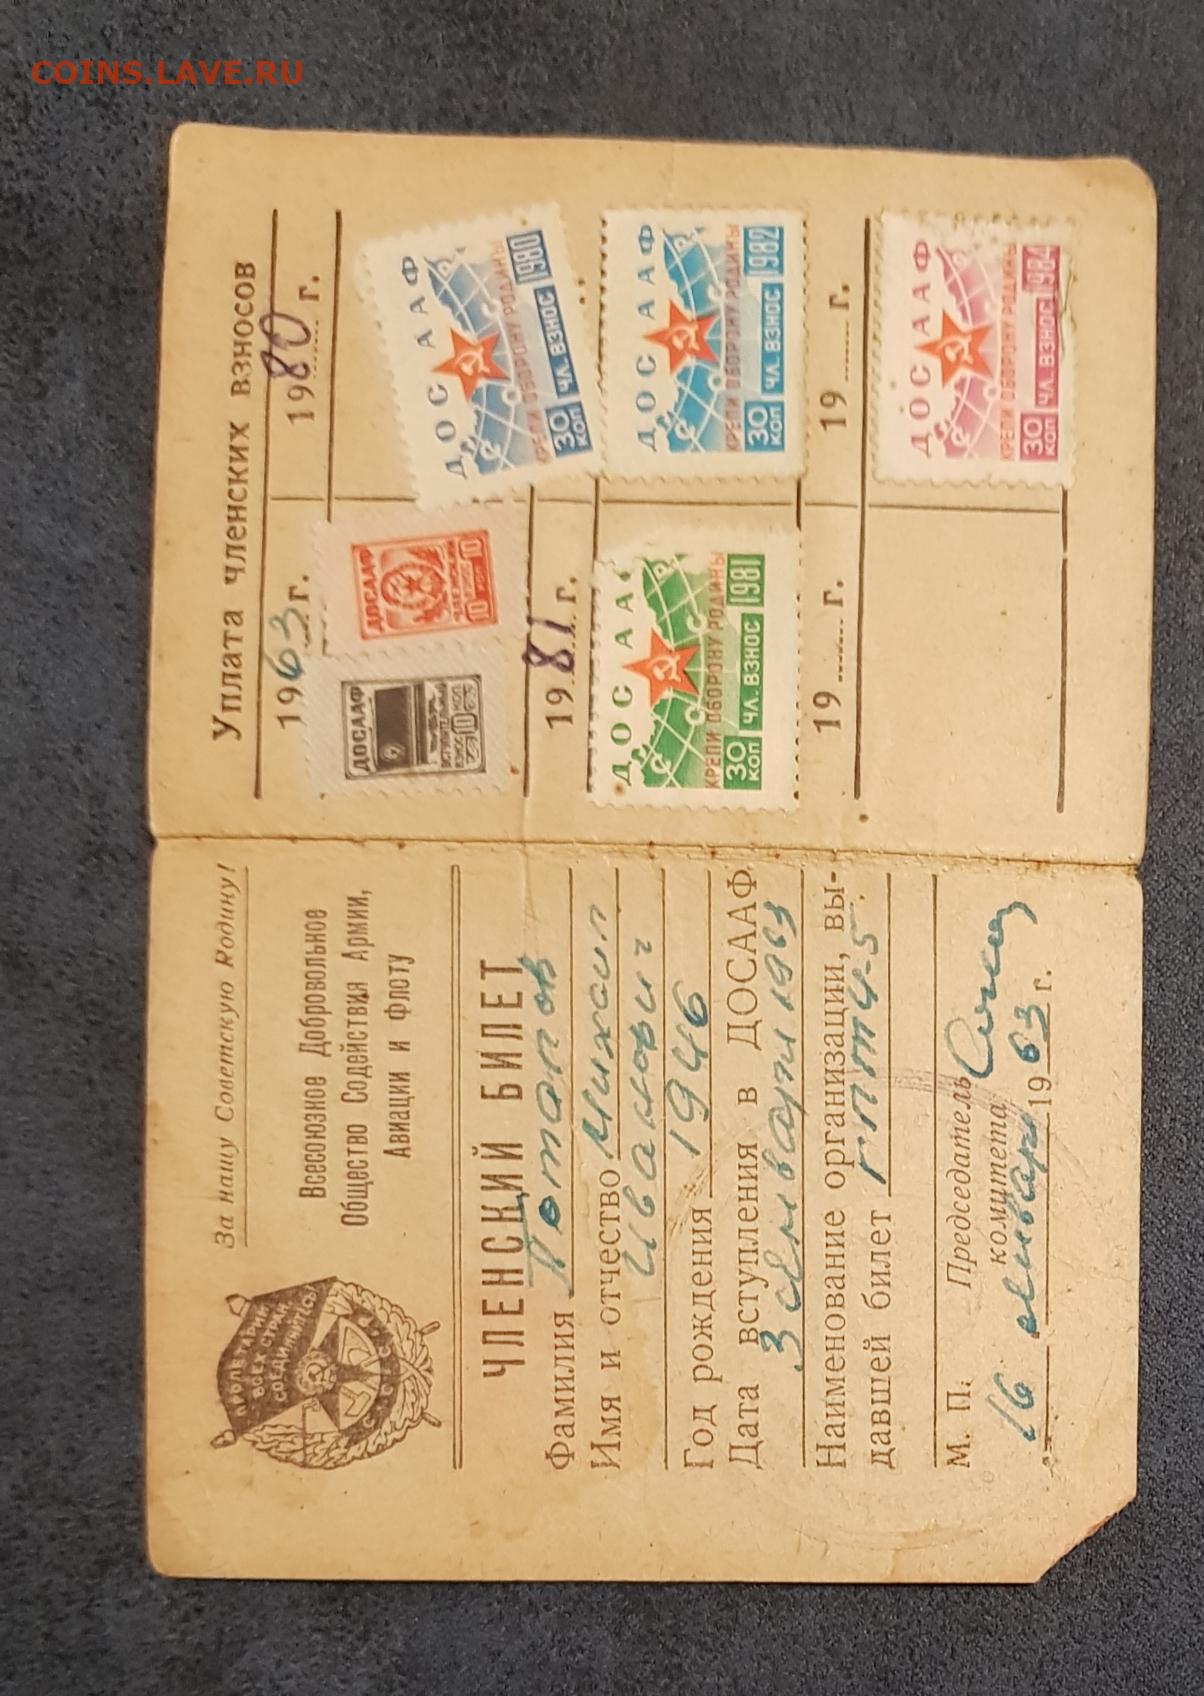 COINS.LAVE.RU
ПРОЛЕТАРИИ
ВСЕХ СТРАН,
СОЕДИНЯЙТЕСЬ!
СССР
За нашу Советскую Родину!
Всесоюзное Добровольное
Общество Содействия Армии,
Авиации и Флоту
ЧЛЕНСКИЙ БИЛЕТ
Фамилия Потапов
Имя и отчество Михаил
Иванович
Год рождения 1946
Дата вступления в ДОСААФ
3 января 1963
Наименование организации, вы-
давшей билет ГПТУ-5
М. П. Председатель
комитета
16 января 1963 г.
Уплата членских взносов
1963 г. 1980 г.
ДОСААФ
ВСТУПИТЕЛЬНЫЙ
ВЗНОС 10 КОП
ДОСААФ
ЧЛЕНСКИЙ
10 ВЗНОС 10
КОП
ДОСААФ
КРЕПИ ОБОРОНУ РОДИНЫ
30 КОП ЧЛ. ВЗНОС 1980
1981 г.
ДОСАА
КРЕПИ ОБОРОНУ РОДИНЫ
30 КОП ЧЛ. ВЗНОС 1981
ДОСААФ
КРЕПИ ОБОРОНУ РОДИНЫ
30 КОП ЧЛ. ВЗНОС 1982
19 г. 19 г.
ДОСААФ
КРЕПИ ОБОРОНУ РОДИНЫ
30 КОП ЧЛ. ВЗНОС 1984